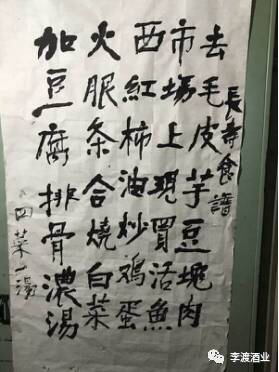 長寿食譜
去毛皮芋豆塊肉
市場上現買活魚
西紅柿油炒鷄蛋
火条合燒白菜
加豆腐排骨濃湯
四菜一湯
李渡酒业